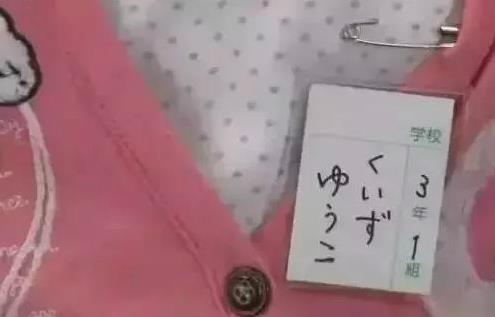 学校
3年1組
くいず
ゆうこ